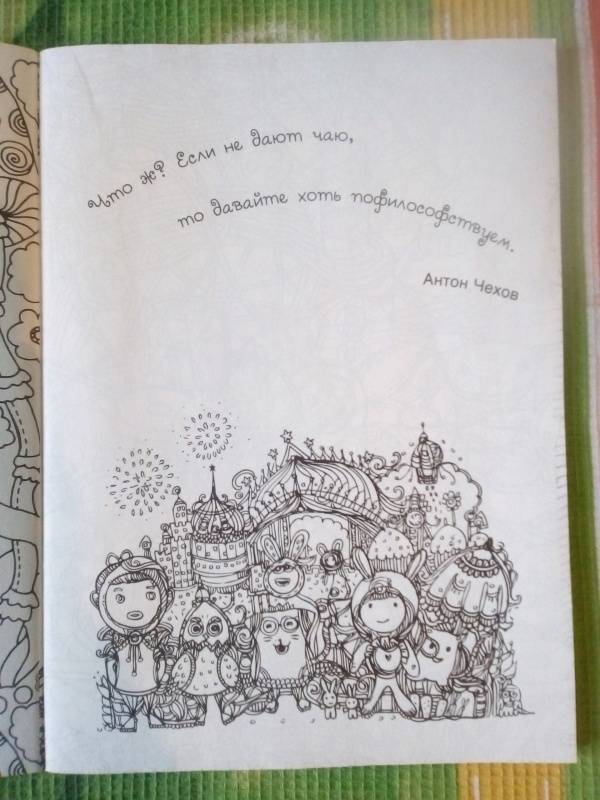 Что ж? Если не дают чаю,
то давайте хоть пофилософствуем.
Антон Чехов